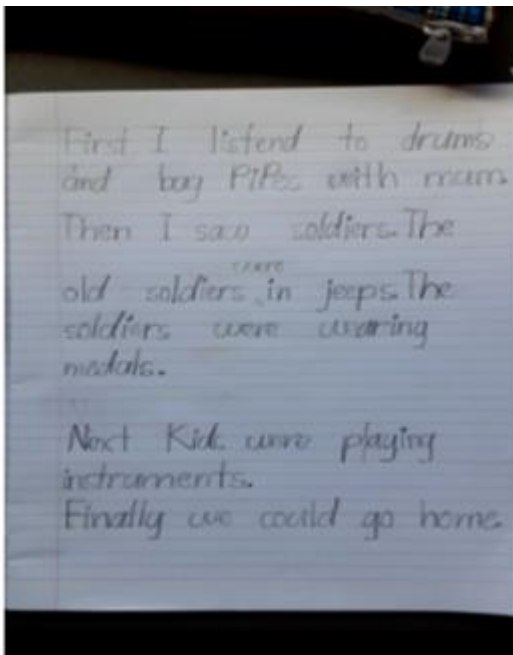 First I listend to drums
and bag PiPes with mum.
Then I saw soldiers. The
old soldiers were in jeeps. The
soldiers were wearing
medals.
Next Kids were playing
instruments.
Finally we could go home.